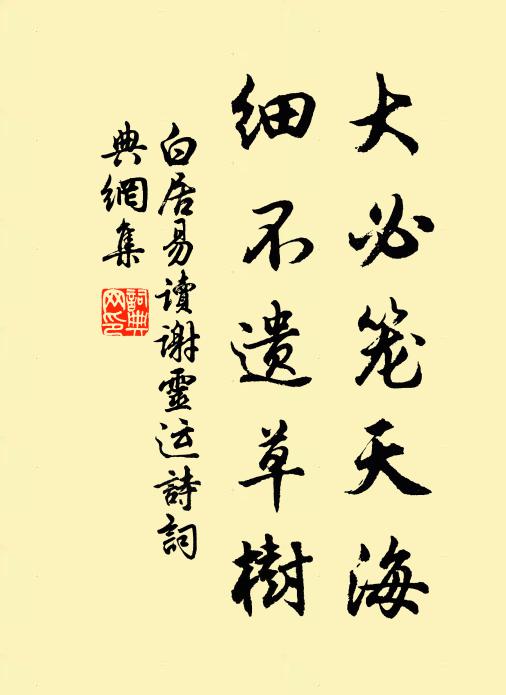 大必笼天海
细不遗草樹
白居易读謝靈运詩詞
典網集
詞典网印